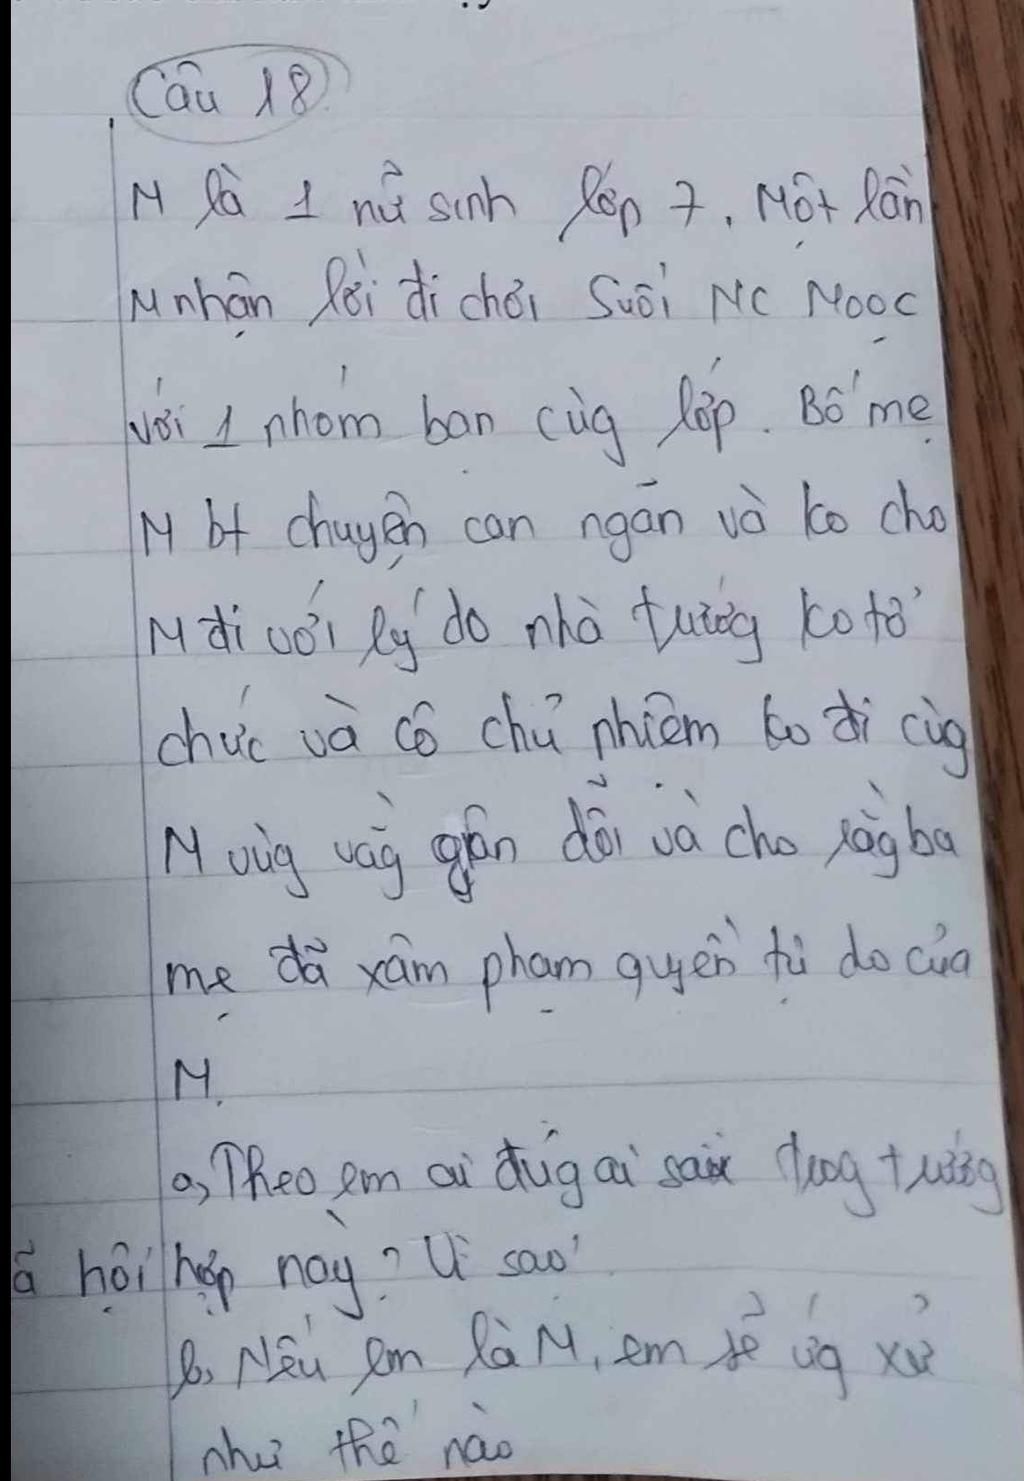 Câu 18
M là 1 nữ sinh lớp 7. Một lần
M nhận lời đi chơi Suối NC Moọc
với 1 nhóm bạn cùg lớp. Bố mẹ
M bt chuyện can ngăn và ko cho
M đi với lý do nhà trườg ko tổ
chức và cô chủ nhiệm ko đi cùg
M vùg vằg giận dỗi và cho rằg ba
mẹ đã xâm phạm quyền tự do của
M.
a, Theo em ai đúg ai sai trog trườg
hợp này? Vì sao
b, Nếu em là M, em sẽ ứg xử
như thế nào
hội